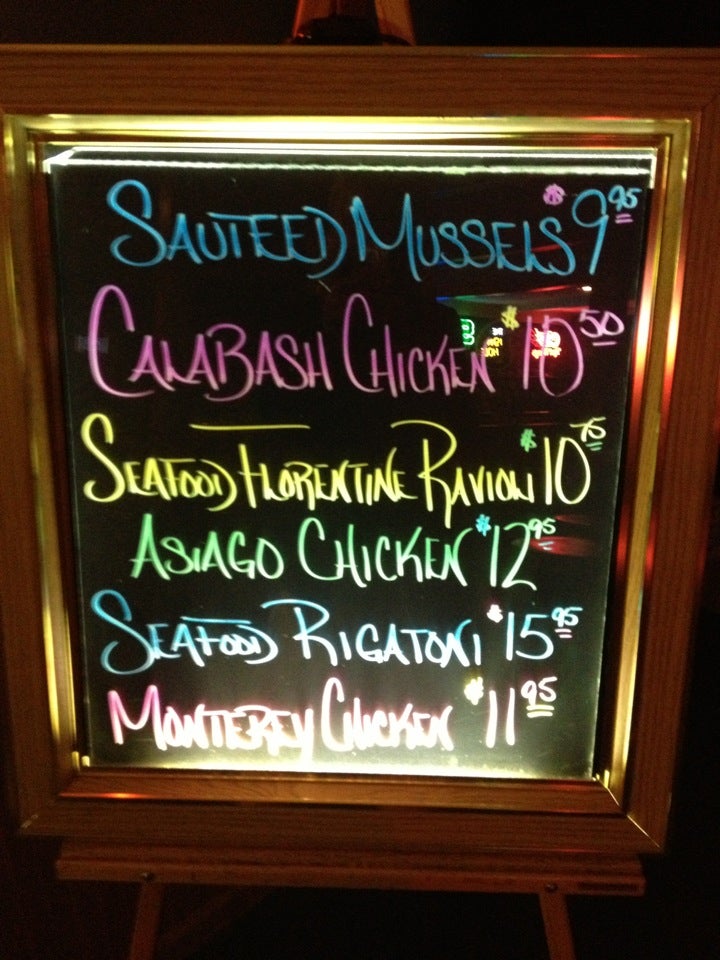 SAUTEED MUSSELS $9.95
CALABASH CHICKEN $10.50
SEAFOOD FLORENTINE RAVIOLI $10.75
ASIAGO CHICKEN $12.95
SEAFOOD RIGATONI $15.95
MONTEREY CHICKEN $11.95